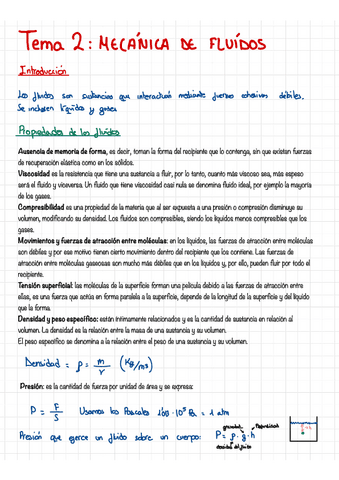 Tema 2: MECÁNICA DE FLUÍDOS
Introducción
Los fluidos son sustancias que interactúan mediante fuerzas cohesivas débiles.
Se incluyen líquidos y gases
Propiedades de los fluidos
Ausencia de memoria de forma, es decir, toman la forma del recipiente que lo contenga, sin que existan fuerzas
de recuperación elástica como en los sólidos.
Viscosidad es la resistencia que tiene una sustancia a fluir, por lo tanto, cuanto más viscoso sea, más espeso
será el fluido y viceversa. Un fluido que tiene viscosidad casi nula se denomina fluido ideal, por ejemplo la mayoría
de los gases.
Compresibilidad es una propiedad de la materia que al ser expuesta a una presión o compresión disminuye su
volumen, modificando su densidad. Los fluidos son compresibles, siendo los líquidos menos compresibles que los
gases.
Movimientos y fuerzas de atracción entre moléculas: en los líquidos, las fuerzas de atracción entre moléculas
son débiles y por ese motivo tienen cierto movimiento dentro del recipiente que los contiene. Las fuerzas de
atracción entre moléculas gaseosas son mucho más débiles que en los líquidos y, por ello, pueden fluir por todo el
recipiente.
Tensión superficial: las moléculas de la superficie forman una película debido a las fuerzas de atracción entre
ellas, es una fuerza que actúa en forma paralela a la superficie, depende de la longitud de la superficie y del líquido
que la forma.
Densidad y peso específico: están íntimamente relacionados y es la cantidad de sustancia en relación al
volumen. La densidad es la relación entre la masa de una sustancia y su volumen.
El peso específico se denomina a la relación entre el peso de una sustancia y su volumen.
Densidad = ρ = m/V (Kg/m3)
Presión: es la cantidad de fuerza por unidad de área y se expresa:
P = F/S Usamos los Pascales 1,013 · 10⁵ Pa = 1 atm
gravedad profundidad
Presión que ejerce un fluido sobre un cuerpo: P = ρ · g · h
densidad del fluido